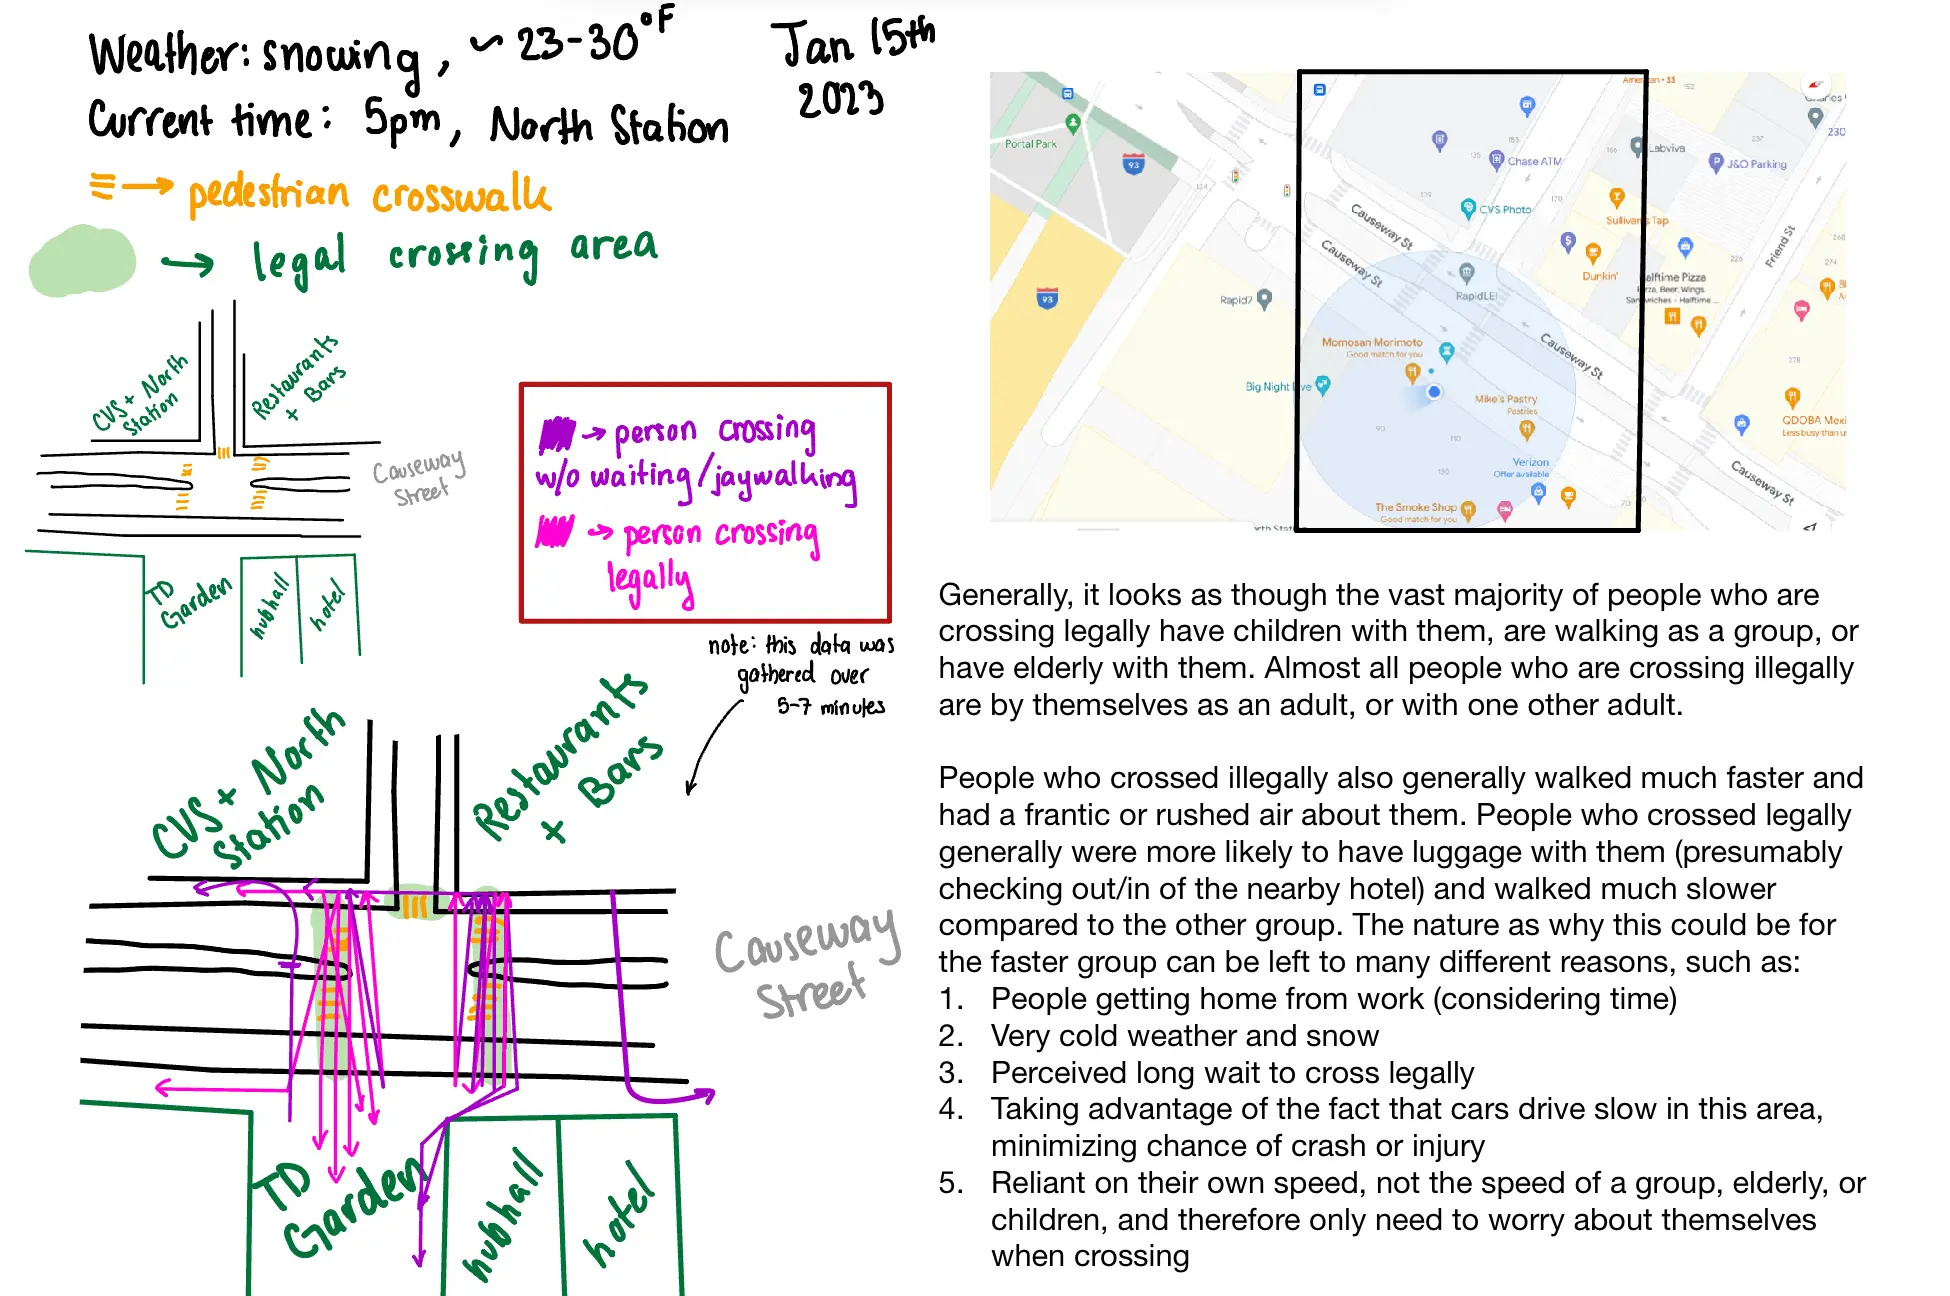 Weather: snowing, ~ 23-30°F
Current time: 5pm, North Station
Jan 15th
2023
→ pedestrian crosswalk
→ legal crossing area
CVS + North
Station
Restaurants
+ Bars
Causeway
Street
TD
Garden
hubhall
hotel
→ person crossing
w/o waiting/jaywalking
→ person crossing
legally
note: this data was
gathered over
5-7 minutes
CVS + North
Station
Restaurants
+ Bars
Causeway
Street
TD
Garden
hubhall
hotel
Portal Park
93
93
134
Rapid7
Big Night Live
Causeway St
Causeway St
Chase ATM
135
185
139
CVS Photo
170
RapidLEI
Momosan Morimoto
Good match for you
Mike's Pastry
Pastries
90
110
130
Verizon
Offer available
The Smoke Shop
Good match for you
Causeway St
70
American • $$
152
166
Labviva
237
J&O Parking
230
Sullivan's Tap
Dunkin'
Halftime Pizza
Pizza, Beer, Wings,
Sandwiches - Halftime ...
226
Friend St
268
274
278
QDOBA Mexi
Less busy than u
Causeway St
Generally, it looks as though the vast majority of people who are
crossing legally have children with them, are walking as a group, or
have elderly with them. Almost all people who are crossing illegally
are by themselves as an adult, or with one other adult.
People who crossed illegally also generally walked much faster and
had a frantic or rushed air about them. People who crossed legally
generally were more likely to have luggage with them (presumably
checking out/in of the nearby hotel) and walked much slower
compared to the other group. The nature as why this could be for
the faster group can be left to many different reasons, such as:
1. People getting home from work (considering time)
2. Very cold weather and snow
3. Perceived long wait to cross legally
4. Taking advantage of the fact that cars drive slow in this area,
minimizing chance of crash or injury
5. Reliant on their own speed, not the speed of a group, elderly, or
children, and therefore only need to worry about themselves
when crossing